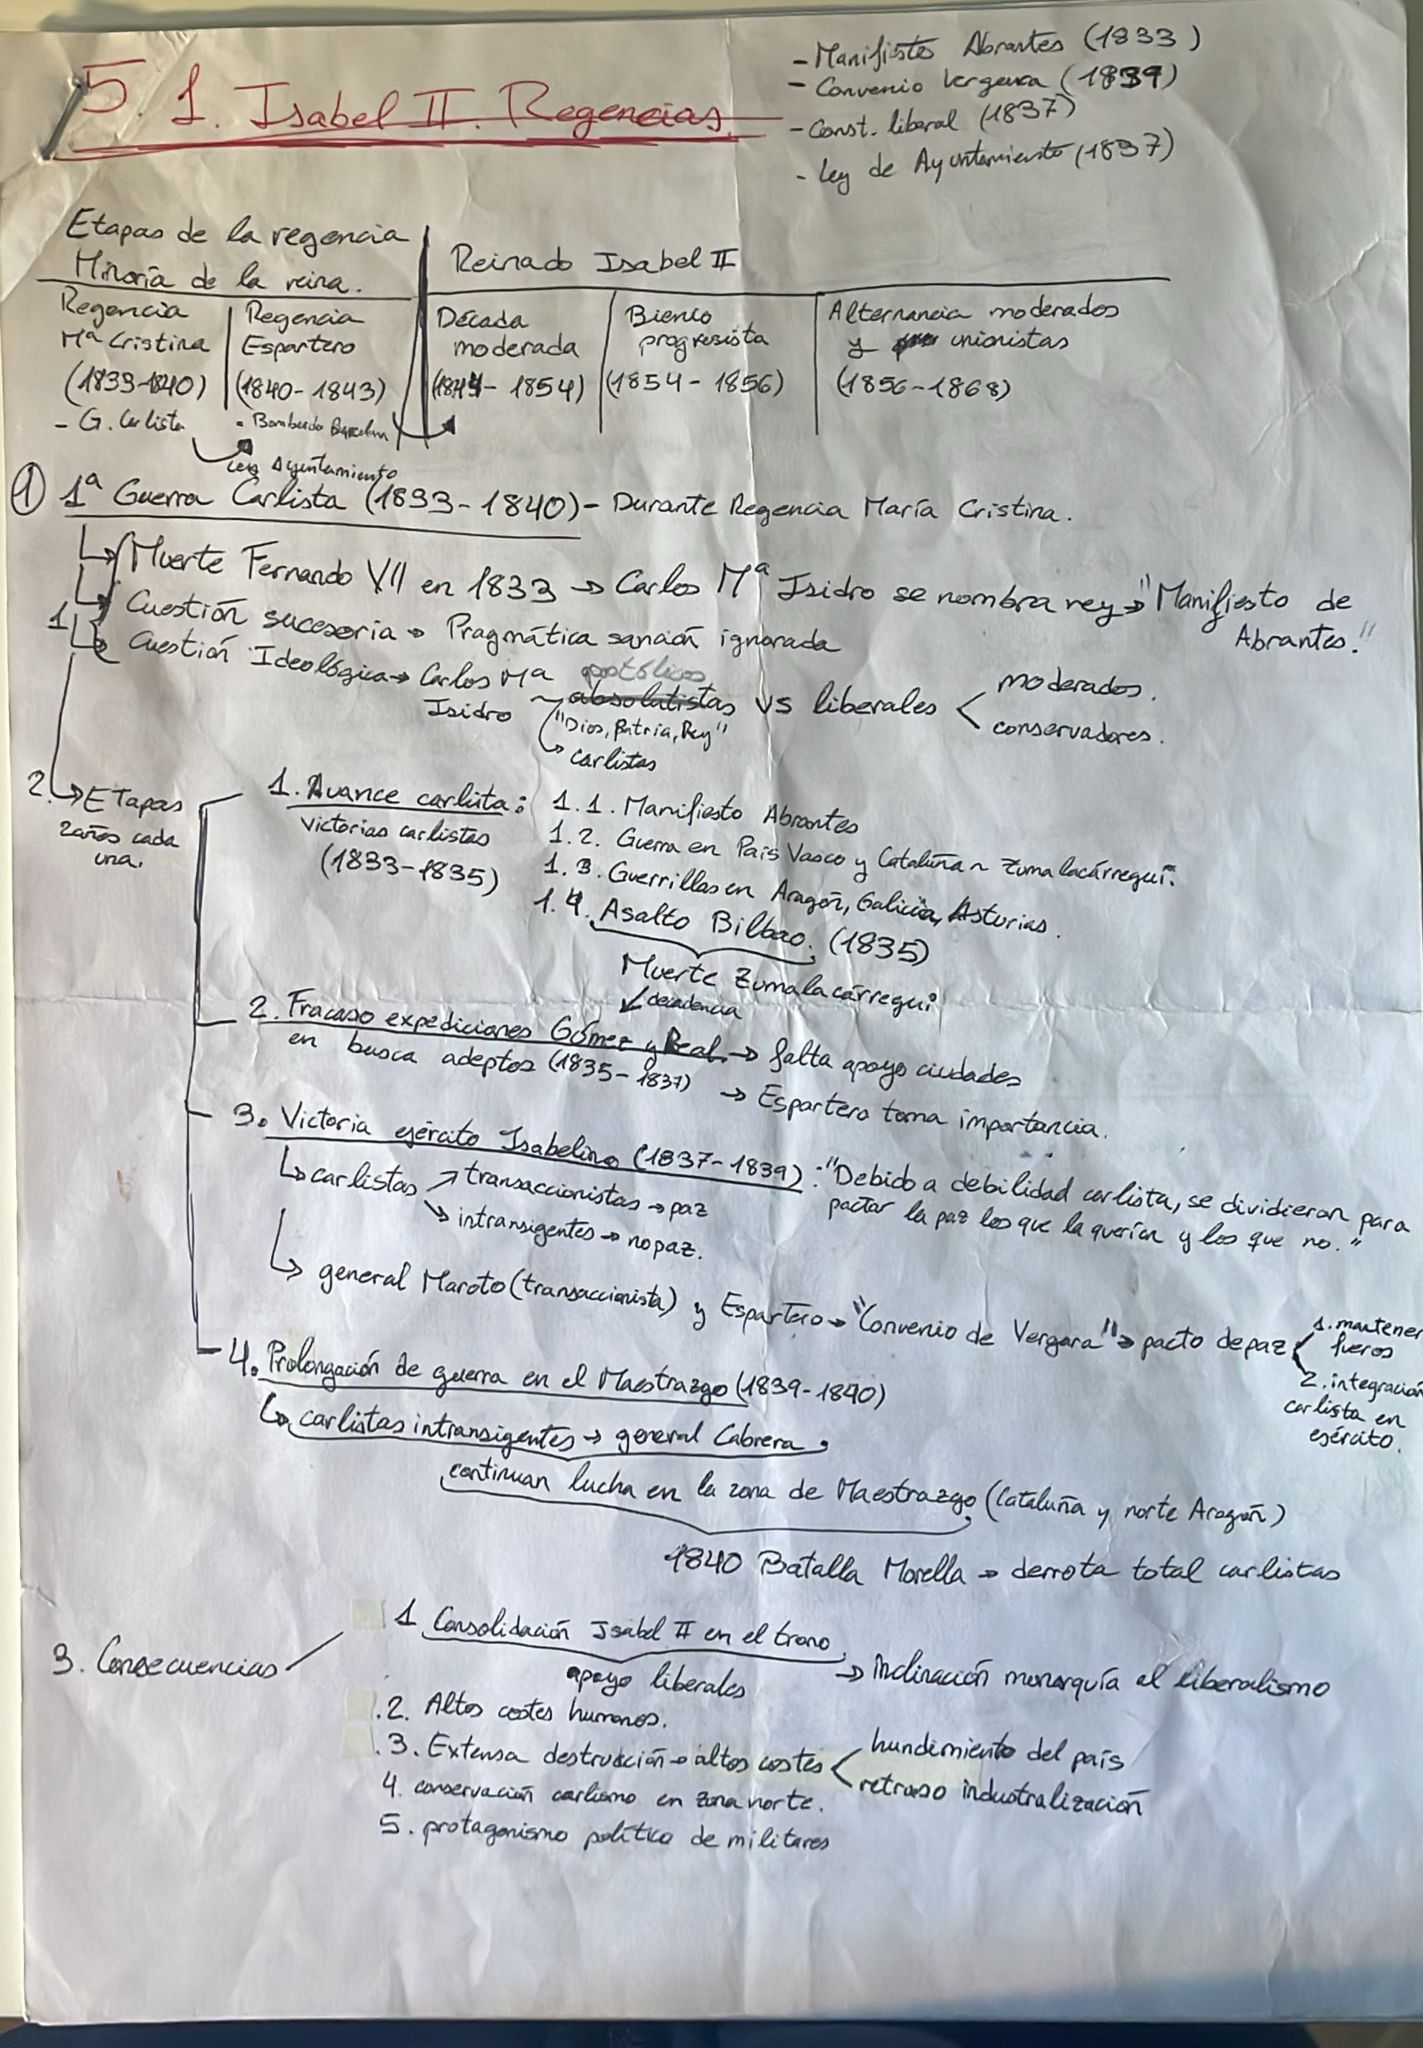 5.1. Isabel II. Regencias.
- Manifiesto Abrantes (1833)
- Convenio Vergara (1839)
- Const. liberal (1837)
- Ley de Ayuntamiento (1837)
Etapas de la regencia
Minoría de la reina.
Reinado Isabel II
Regencia
Mª Cristina
(1833-1840)
- G. Carlista
Regencia
Espartero
(1840-1843)
• Bombardo Barcelona
Ley Ayuntamiento
Década
moderada
(1844-1854)
Bienio
progresista
(1854-1856)
Alternancia moderados
y unionistas
(1856-1868)
① 1ª Guerra Carlista (1833-1840) - Durante Regencia María Cristina.
1. Muerte Fernando VII en 1833 → Carlos Mª Isidro se nombra rey → "Manifiesto de
Abrantes."
Cuestión sucesoria → Pragmática sanción ignorada
Cuestión Ideológica → Carlos Mª
Isidro
apostólicos
absolutistas vs liberales < moderados.
conservadores.
"Dios, Patria, Rey"
↳ carlistas
2. → ETapas
2 años cada
una.
1. Avance carlista:
victorias carlistas
(1833-1835)
1.1. Manifiesto Abrantes
1.2. Guerra en País Vasco y Cataluña ~ Zumalacárregui.
1.3. Guerrillas en Aragón, Galicia, Asturias.
1.4. Asalto Bilbao. (1835)
Muerte Zumalacárregui
↙ decadencia
2. Fracaso expediciones Gómez y Real → falta apoyo ciudades
en busca adeptos (1835-1837) → Espartero toma importancia.
3. Victoria ejército Isabelino (1837-1839): "Debido a debilidad carlista, se dividieron para
pactar la paz los que la querían y los que no."
↳ carlistas ↗ transaccionistas → paz
↘ intransigentes → no paz.
↳ general Maroto (transaccionista) y Espartero → "Convenio de Vergara" → pacto de paz
1. mantener
fueros
2. integración
carlista en
ejército.
4. Prolongación de guerra en el Maestrazgo (1839-1840)
↳ carlistas intransigentes → general Cabrera.
continuan lucha en la zona de Maestrazgo (Cataluña y norte Aragón)
1840 Batalla Morella → derrota total carlistas
3. Consecuencias
1 Consolidación Isabel II en el trono
apoyo liberales
→ inclinación monarquía al liberalismo
.2. Altos costes humanos.
.3. Extensa destrucción → altos costes < hundimiento del país
retraso industralización
4. conservación carlismo en zona norte.
5. protagonismo político de militares